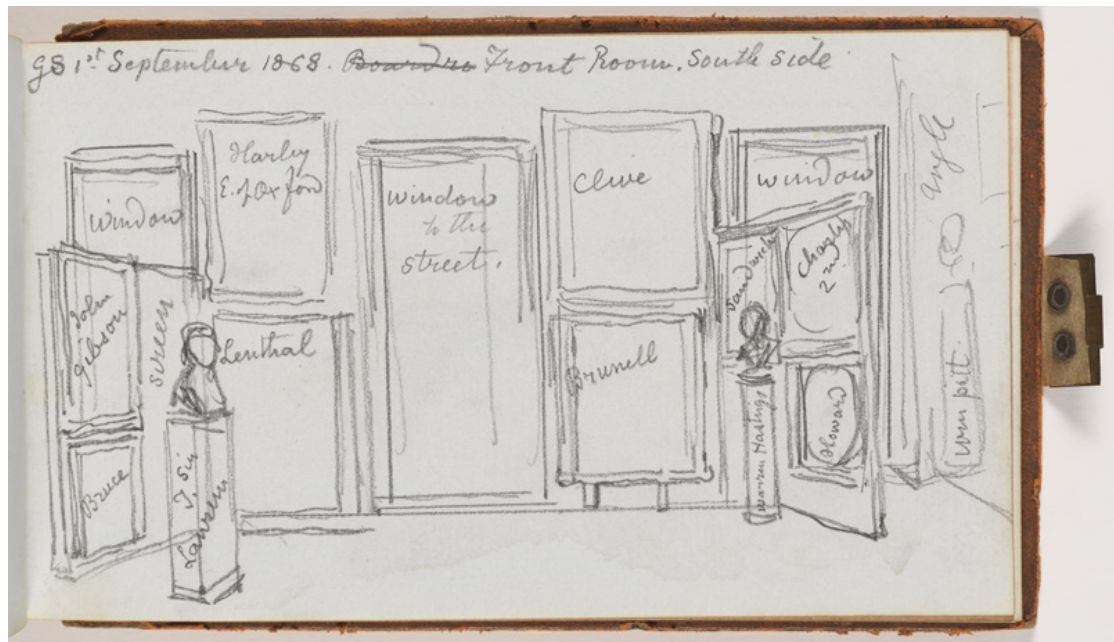 GS 1st September 1868. Boardro Front Room. South side
window
Harley
E. of Oxford
window
to the
street.
Clive
window
Angle
John
Gibson
screen
Lenthal
Brunell
Sandwich
Charles
2nd
Bruce
T. Sir
Lawren
Warren Hastings
Howard
Wm pitt.